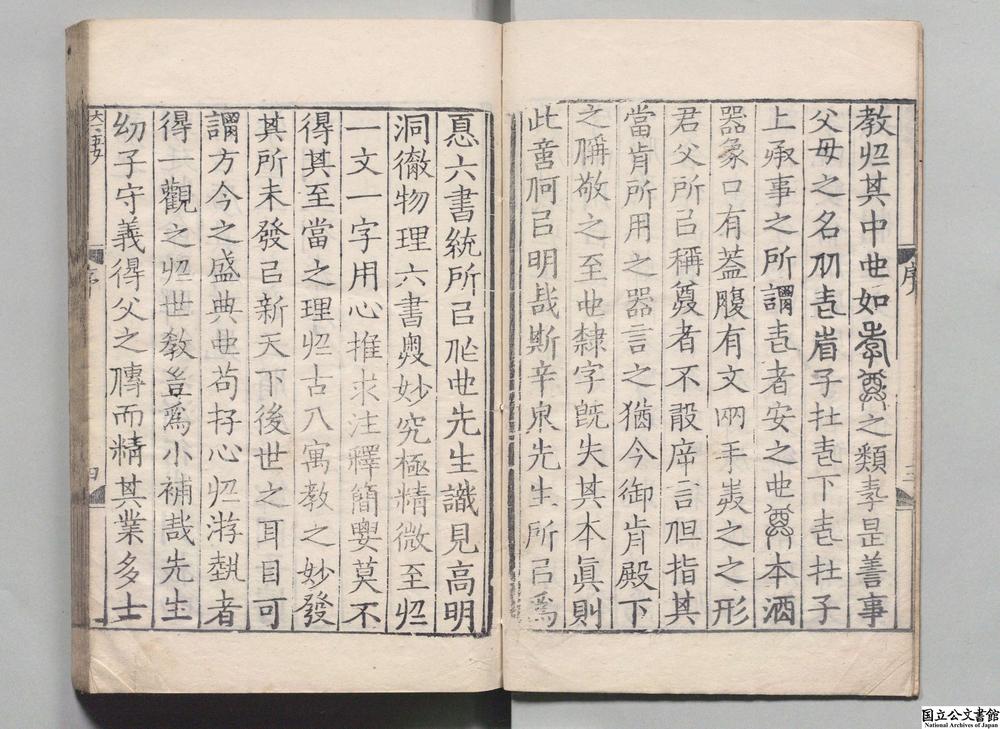 教㱕其中也如孝尊之類孝是善事
父母之名从老省子在老下老在子
上承事之所謂老者安之也尊本酒
器象口有蓋腹有文兩手奉之之形
君父所㠯稱尊者不敢席言但指其
當肯所用之器言之猶今御肯殿下
之稱敬之至也隸字旣失其本眞則
此意何㠯明哉斯辛泉先生所㠯爲
序
三
惪六書統所㠯作也先生識見高明
洞徹物理六書奧妙究極精微至於
一文一字用心推求注釋簡要莫不
得其至當之理於古人寓教之妙發
其所未發㠯新天下後世之耳目可
謂方今之盛典也苟存心於游藝者
得一觀之於世教豈爲小補哉先生
幼子守義得父之傳而精其業多士
序
四
国立公文書館
National Archives of Japan